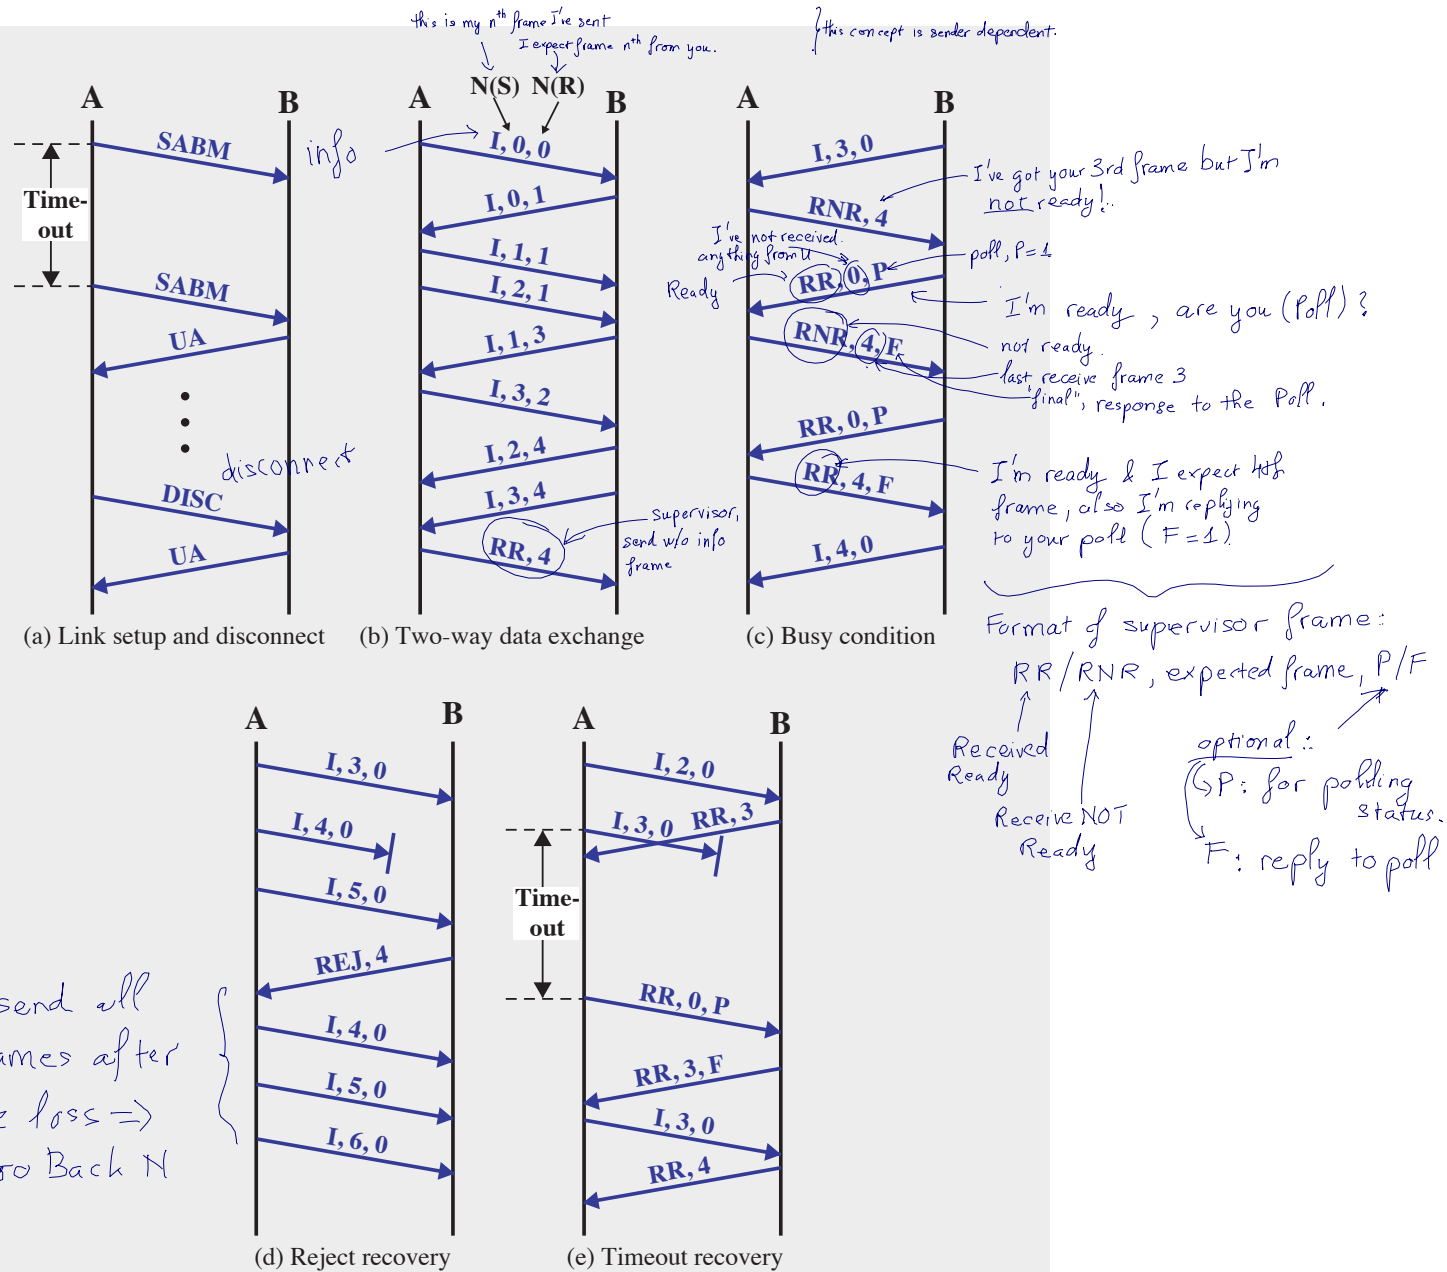 this is my nth frame I've sent
I expect frame nth from you.
this concept is sender dependent.
A
B
SABM
Time-
out
SABM
UA
disconnect
DISC
UA
(a) Link setup and disconnect
info
N(S) N(R)
A
B
I, 0, 0
I, 0, 1
I, 1, 1
I, 2, 1
I, 1, 3
I, 3, 2
I, 2, 4
I, 3, 4
RR, 4
supervisor,
send w/o info
frame
(b) Two-way data exchange
A
B
I, 3, 0
RNR, 4
I've got your 3rd frame but I'm
not ready!..
I've not received.
anything from U
Ready
RR, 0, P
poll, P=1
I'm ready, are you (Poll)?
RNR, 4, F
not ready.
last receive frame 3
"final", response to the Poll.
RR, 0, P
RR, 4, F
I'm ready & I expect 4th
frame, also I'm replying
to your poll (F=1)
I, 4, 0
(c) Busy condition
Format of supervisor frame:
RR/RNR, expected frame, P/F
Received
Ready
Receive NOT
Ready
optional:
P: for polling
status.
F: reply to poll
A
B
I, 3, 0
I, 4, 0
I, 5, 0
REJ, 4
I, 4, 0
I, 5, 0
I, 6, 0
send all
ames after
e loss =>
o Back N
(d) Reject recovery
A
B
I, 2, 0
RR, 3
I, 3, 0
Time-
out
RR, 0, P
RR, 3, F
I, 3, 0
RR, 4
(e) Timeout recovery